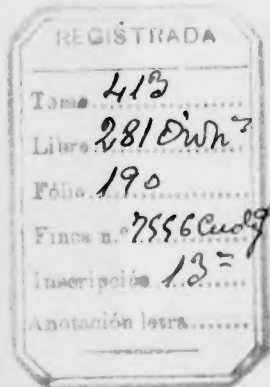 REGISTRADA
Tomo 413
Libro 281
Folio 190
Finca n.º 7556
Inscripción 13ª
Anotación letra